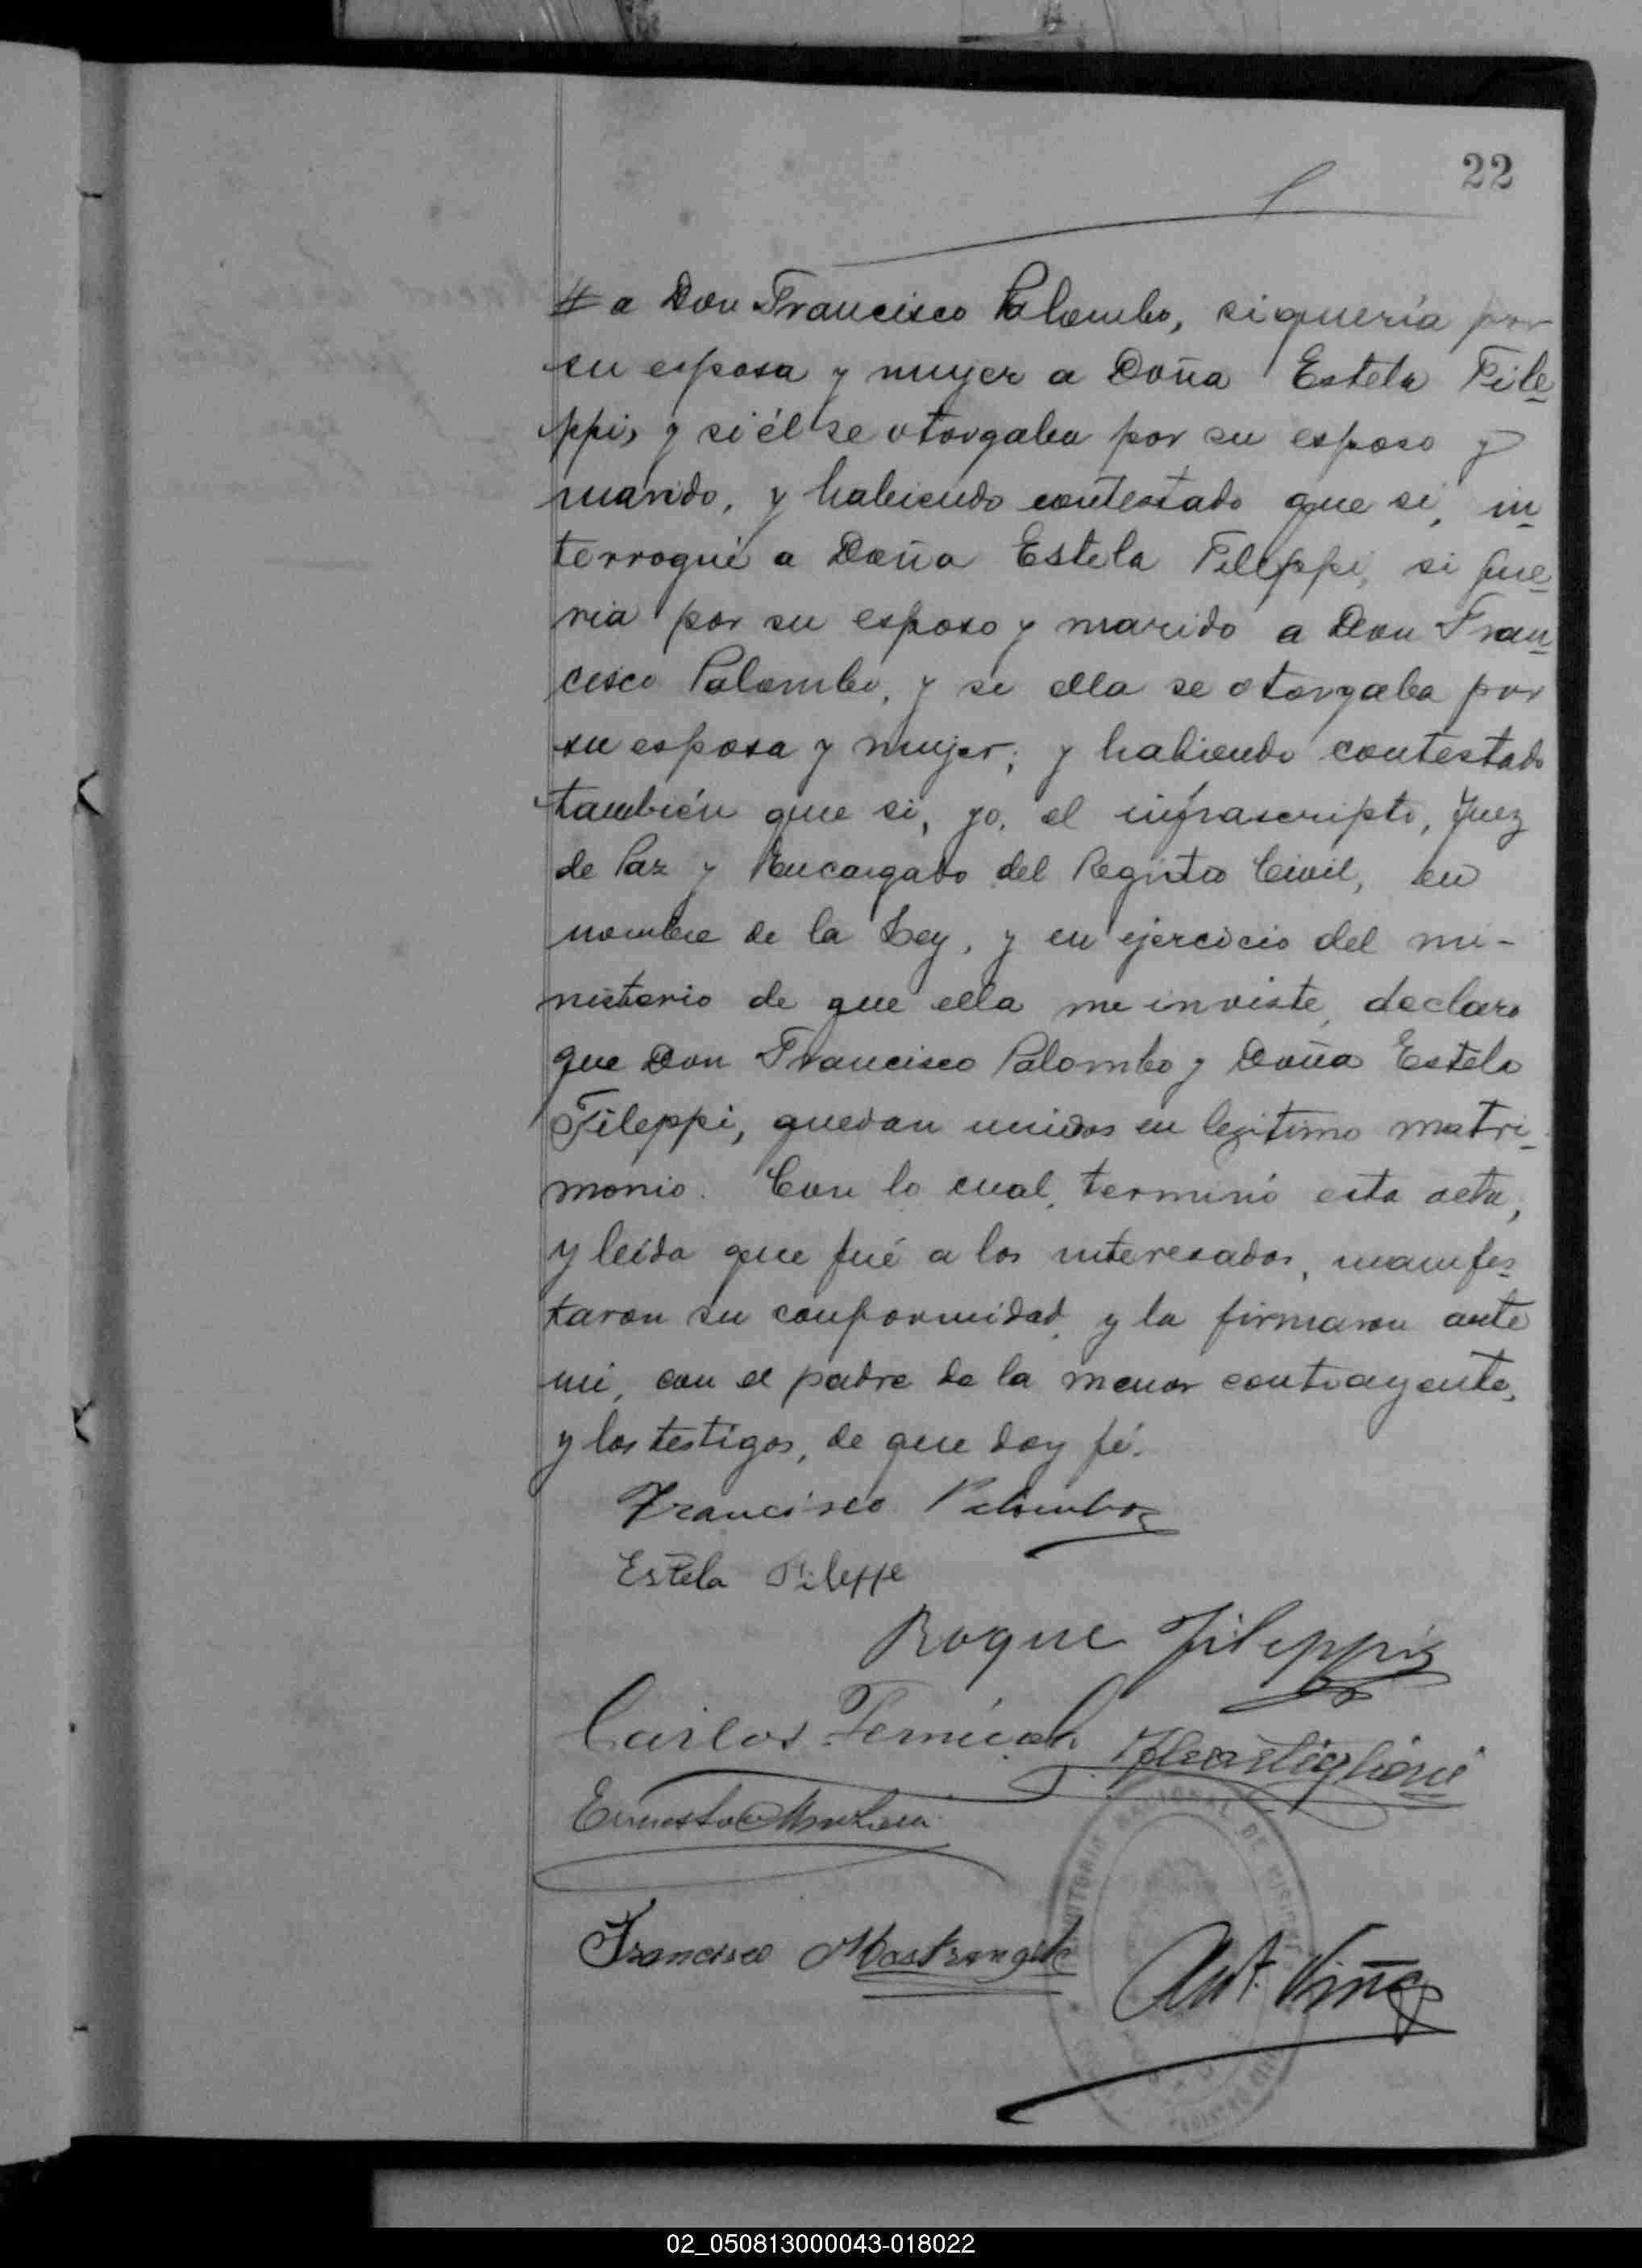 22
# a Don Francisco Palombo, si quería por
su esposa y mujer a Doña Estela File
ppi, y si él se otorgaba por su esposo y
marido, y habiendo contestado que si, in
terrogué a Doña Estela Fileppi, si que
ria por su esposo y marido a Don Fran
cisco Palombo, y si ella se otorgaba por
su esposa y mujer; y habiendo contestado
también que si, yo, el infrascripto, Juez
de Paz y Encargado del Registro Civil, en
nombre de la Ley, y en ejercicio del mi-
nisterio de que ella me inviste, declaro
que Don Francisco Palombo y Doña Estela
Fileppi, quedan unidos en legitimo matri-
monio. Con lo cual, terminó esta acta,
y leída que fué a los interesados, manifes
taron su conformidad, y la firmaron ante
mi, con el padre de la menor contrayente,
y los testigos, de que doy fé.
Francisco Palombo
Estela Fileppe
Roque Fileppi
Carlos
Ernesto
Francisco Mastrangelo
Ant. Viña
TERRITORIO NACIONAL DE MISIONES
02_050813000043-018022